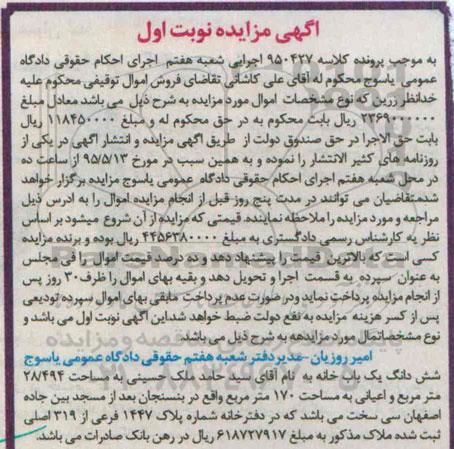 آگهی مزایده نوبت اول
به موجب پرونده کلاسه ۹۵۰۴۲۷ اجرایی شعبه هفتم اجرای احکام حقوقی دادگاه
عمومی یاسوج محکوم له آقای علی کاشانی تقاضای فروش اموال توقیفی محکوم علیه
خدانظر زرین که نوع مشخصات اموال مورد مزایده به شرح ذیل می باشد معادل مبلغ
۲۳۶۹۰۰۰۰۰۰ ریال بابت محکوم به در حق محکوم له و مبلغ ۱۱۸۴۵۰۰۰۰ ریال
بابت حق الاجرا در حق صندوق دولت از طریق آگهی مزایده و انتشار آگهی در یکی از
روزنامه های کثیر الانتشار را نموده و به همین سبب در مورخ ۹۵/۵/۱۳ از ساعت ده
در محل شعبه هفتم اجرای احکام حقوقی دادگاه عمومی یاسوج مزایده برگزار خواهد
شد،متقاضیان می توانند در مدت پنج روز قبل از انجام مزایده اموال را به ادرس ذیل
مراجعه و مورد مزایده را ملاحظه نماینده،قیمتی که مزایده از آن شروع میشود بر اساس
نظر یه کارشناس رسمی دادگستری به مبلغ ۴۴۵۶۳۸۰۰۰۰ ریال بوده و برنده مزایده
کسی است که بالاترین قیمت را پیشنهاد دهد و ده درصد قیمت اموال را فی مجلس
به عنوان سپرده به قسمت اجرا و تحویل دهد و بقیه بهای اموال را ظرف۳۰ روز پس
از انجام مزایده پرداخت نماید ودر صورت عدم پرداخت مابقی بهای اموال سپرده تودیعی
پس از کسر هزینه مزایده به نفع دولت ضبط خواهد شد،این آگهی نوبت اول می باشد و
نوع مشخصاتمال مورد مزایدهه به شرح ذیل می باشد
امیر روزیان-مدیر دفتر شعبه هفتم حقوقی دادگاه عمومی یاسوج
شش دانگ یک باب خانه به نام آقای سید حامد ملک حسینی به مساحت ۲۸/۴۹۴
متر مربع و اعیانی به مساحت ۱۷۰ متر مربع واقع در بنسنجان بعد از مسجد بین جاده
اصفهان سی سخت می باشد که در دفترخانه شماره پلاک ۱۴۴۷ فرعی از ۳۱۹ اصلی
ثبت شده ملاک مذکور به مبلغ ۶۱۸۷۲۷۹۱۷ ریال در رهن بانک صادرات می باشد.